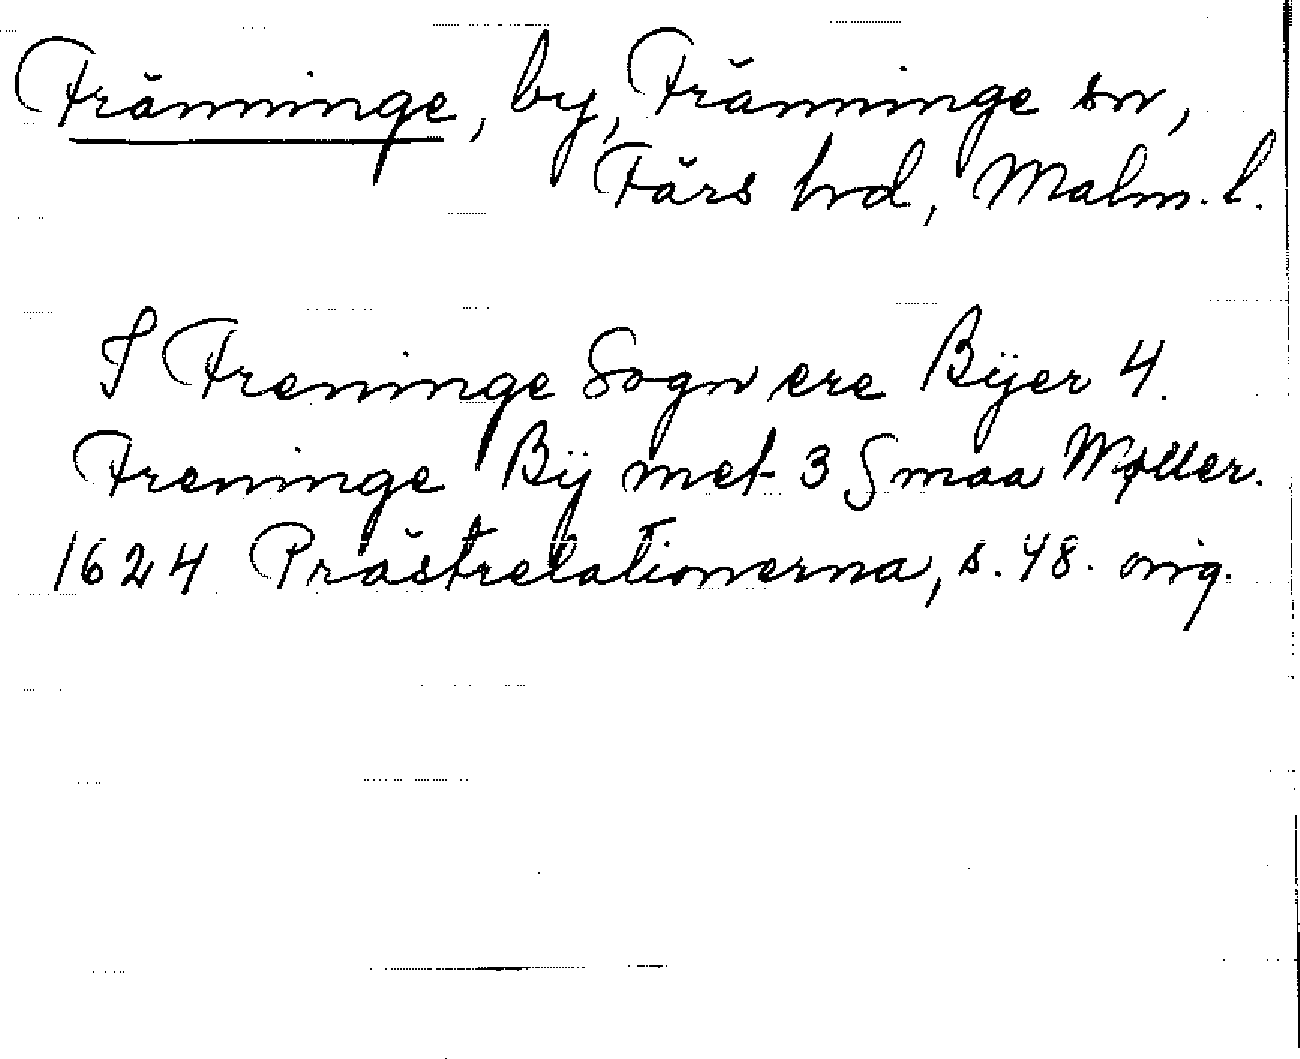 Fränninge, by, Fränninge sn,
Färs hrd, Malm. l.
I Freninge Sogn ere Bÿer 4.
Freninge Bÿ met 3 Smaa Møller.
1624 Prästrelationerna, s. 48. orig.